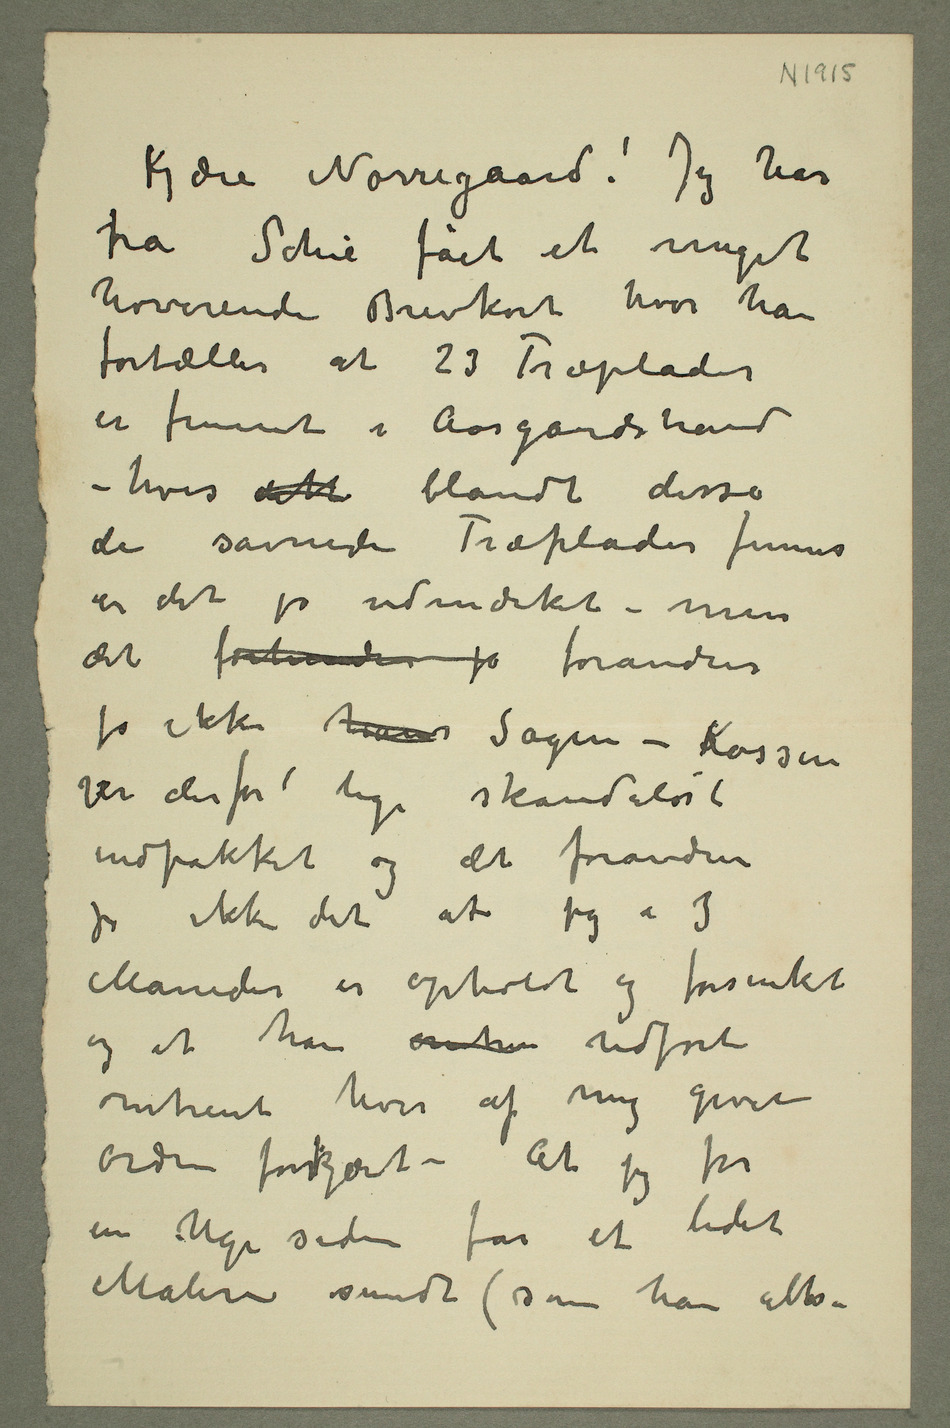 N1915
Kjære Nørregaard! Jeg har
fra Schie fået et meget
hoverende Brevkort hvor han
fortæller at 23 Træplader
er funnet i Aasgaardstrand
– hvis dette blandt disse
de savnede Træplader finnes
er det jo udmærket – men
det forhindrer jo forandrer
jo ikke hans Sagen – Kassen
var derfor lige skandaløst
indpakket og det forandrer
jo ikke det at jeg i 3
Maneder er opholdt og forsinket
og at han omtren udført
omtrent hver af mig givet
Ordre forkjært – At jeg for
en Uge siden får et lidet
Maleri sendt (som han altså